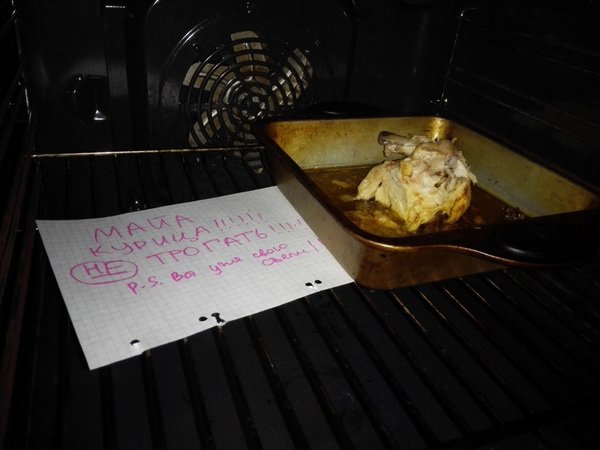 МАЙА
КУРИЦА!!!!!!
НЕ ТРОГАТЬ!!!!!
P.S. Вы уже свою
съели!